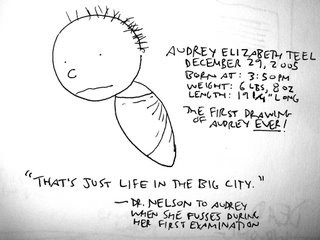 AUDREY ELIZABETH TEEL
DECEMBER 29, 2005
BORN AT: 3:50PM
WEIGHT: 6 LBS, 8 OZ
LENGTH: 19 1/4" LONG
THE FIRST DRAWING
OF AUDREY EVER!
"THAT'S JUST LIFE IN THE BIG CITY."
— DR. NELSON TO AUDREY
WHEN SHE FUSSES DURING
HER FIRST EXAMINATION